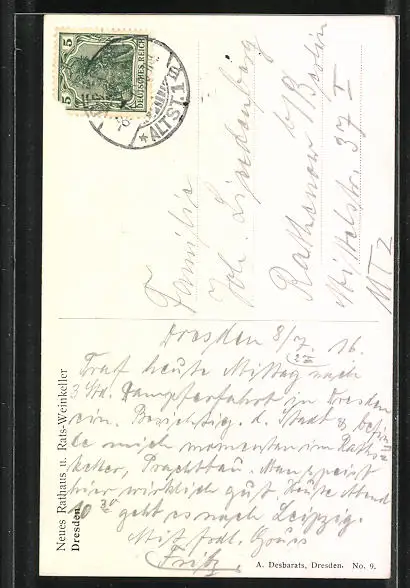 5 5
DEUTSCHES REICH
* ALTST. 1 m
Familie
Joh. Lindenberg
Rathenow b/Berlin
Mittelstr. 37 I
Neues Rathaus u. Rats-Weinkeller
Dresden
Dresden 8/7. 16.
Traf heute Mittag nach
3 Std. Dampferfahrt in Dresden
ein. Besichtig. d. Stadt & befin
de mich momentan im Raths
keller, Prachtbau. Man speist
hier wirklich gut. Heute Abend
10 30 geht es nach Leipzig.
Mit frdl. Gruss
Fritz.
A. Desbarats, Dresden. No. 9.